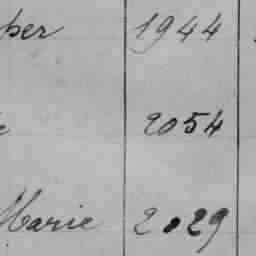 per 1944
2054
Marie 2029